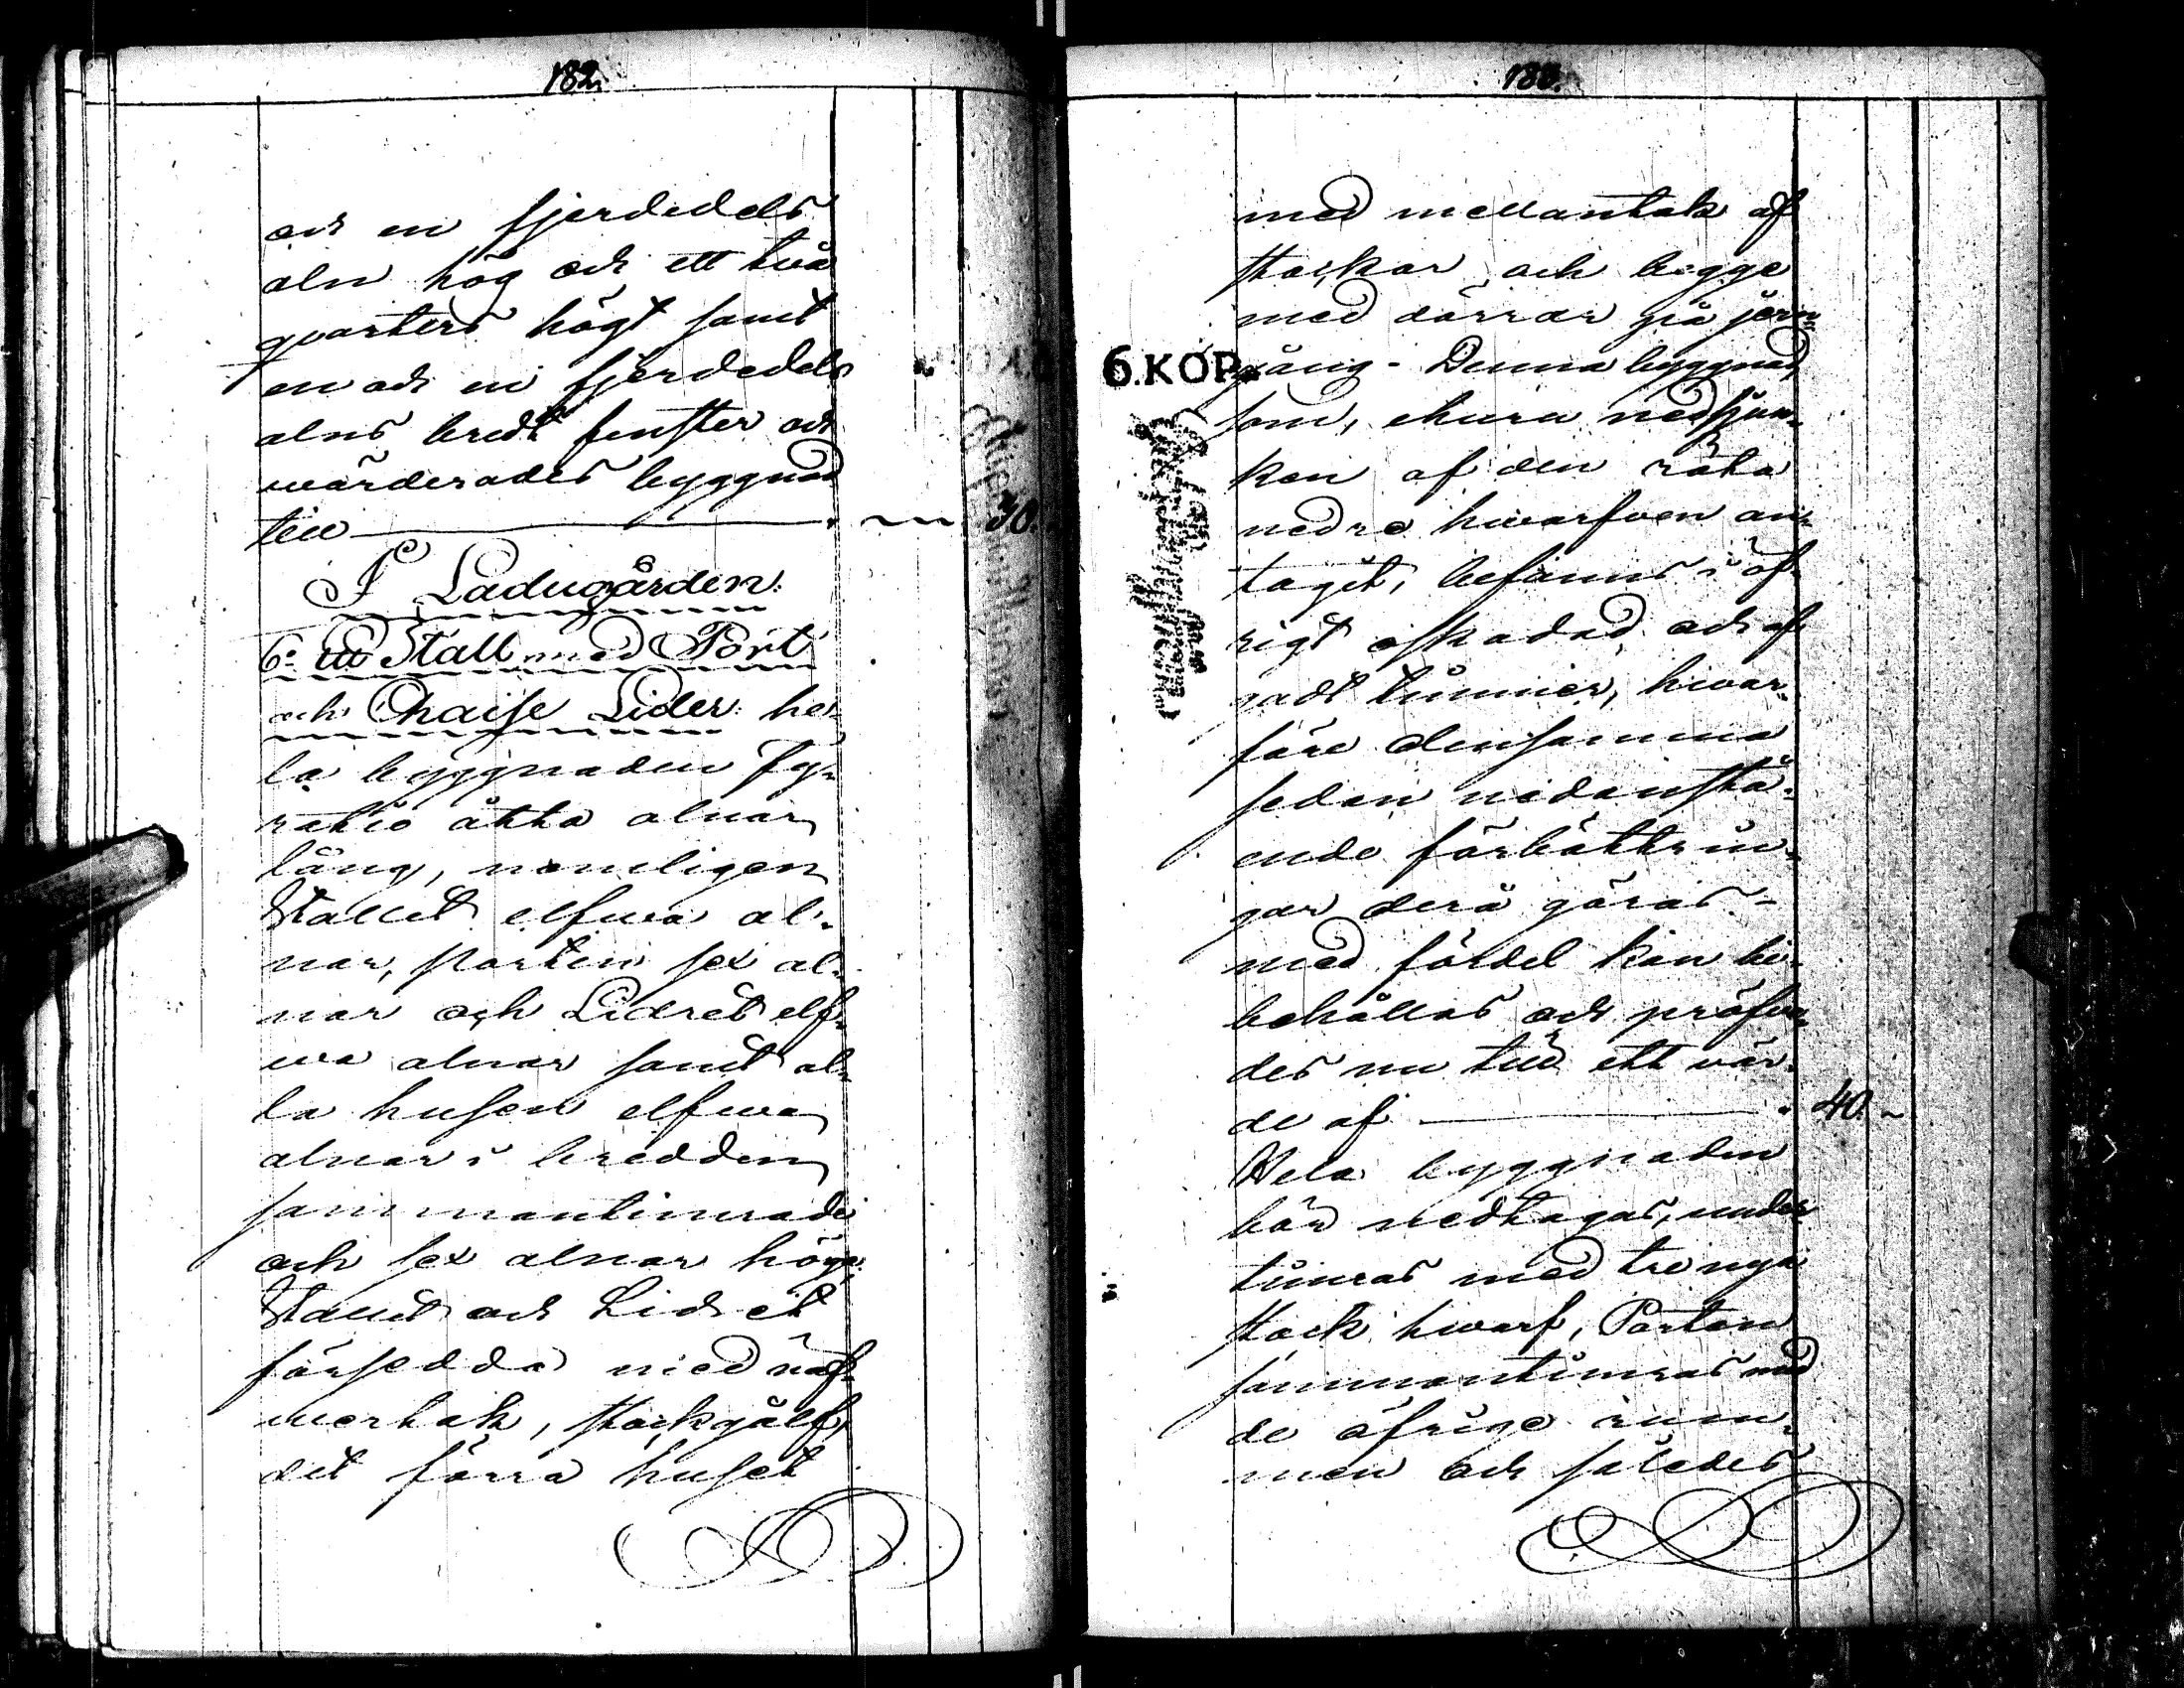 182.
och en fjerdedels
aln hög och ett två
qvarters högt samt
en och en fjerdedels
alns bredt fenster och
wärderades byggnad
till 30.
I Ladugården:
6:o Ett Stall med Port
och Chaise Lider: he-
la byggnaden fy-
ratio åtta alnar
lång, nemligen
Stallet elfwa al-
nar, Porten sex al-
nar och Lidret elf-
wa alnar samt al-
la husen elfwa
alnar i bredden
sammantimrade
och sex alnar höga,
Stallet och Lidret
försedda med näf-
wertak, stockgolf,
det förra huset
183.
med mellantak af
stockar och begge
med dörrar på jern-
gång. Denna byggnad
som, ehuru nedsjun-
ken af den röta
nedre hwarfwen an-
tagit, befanns i öf-
rigt oskadad och af
godt timmer, hwar-
före densamma
sedan nedanstå-
ende förbättrin-
gar derå göras
med fördel kan bi-
behållas och pröfwa-
des nu till ett wär-
de af 40.
Hela byggnaden
bör nedtagas, under-
timras med tre nya
stock hwarf, Porten
sammantimras med
de öfrige rum-
men och således
6.KOP.